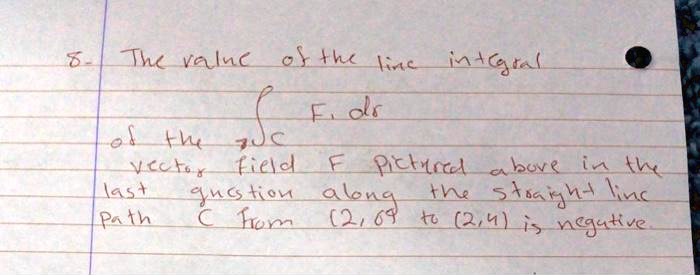 8- The value of the line integral
∫C F. dr
of the
vector field F pictured above in the
last question along the straight line
path C from (2, to (2,4) is negative.